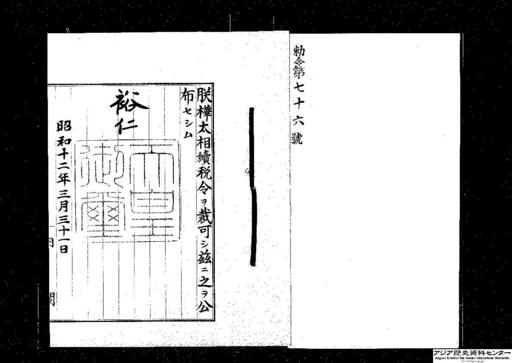 勅令第七十六號
朕樺太相續税令ヲ裁可シ茲ニ之ヲ公
布セシム
裕仁
天皇御璽
昭和十二年三月三十一日
内閣
アジア歴史資料センター
Japan Center for Asian Historical Records